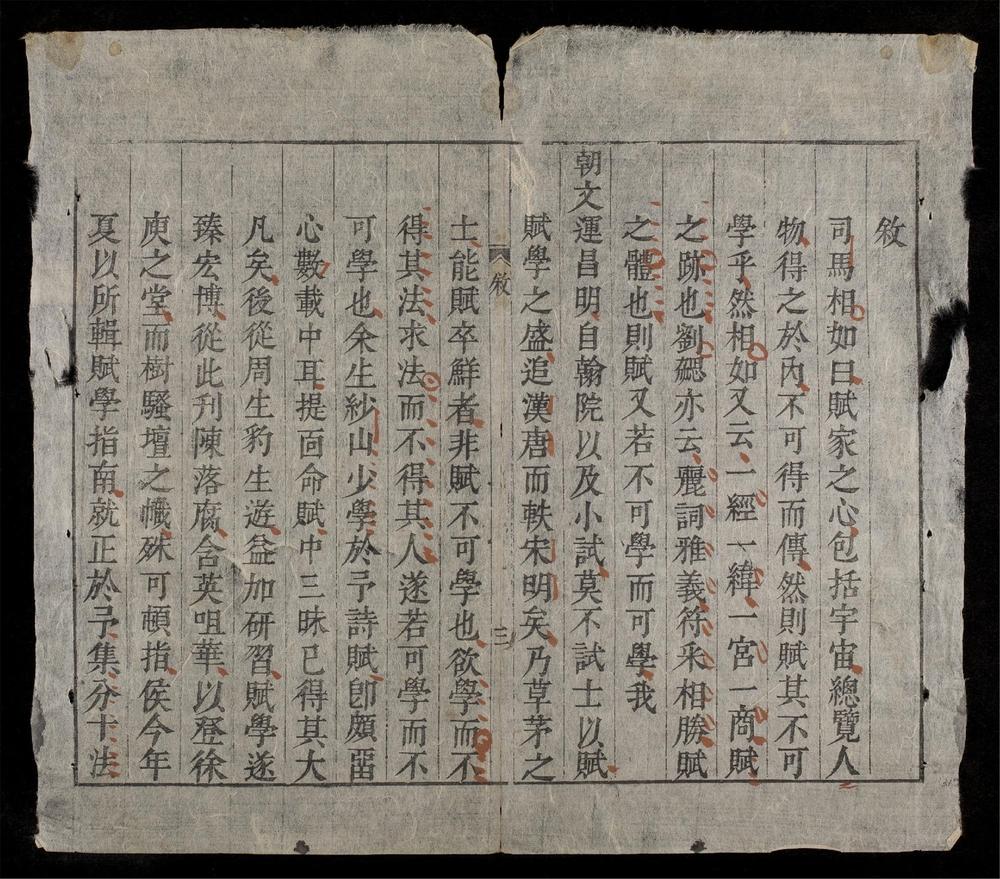 敘
司馬相如曰賦家之心包括宇宙總覽人
物得之於內不可得而傳然則賦其不可
學乎然相如又云一經一緯一宮一商賦
之跡也劉勰亦云麗詞雅義符采相勝賦
之體也則賦又若不可學而可學我
朝文運昌明自翰院以及小試莫不試士以賦
賦學之盛追漢唐而軼宋明矣乃草茅之
敘
三
士能賦卒鮮者非賦不可學也欲學而不
得其法求法而不得其人遂若可學而不
可學也余生紗山少學於予詩賦卽頗畱
心數載中耳提面命賦中三昧已得其大
凡矣後從周生豹生遊益加研習賦學遂
臻宏博從此刋陳落腐含英咀華以登徐
庾之堂而樹騷壇之幟殊可頓指矦今年
夏以所輯賦學指南就正於予集分十法